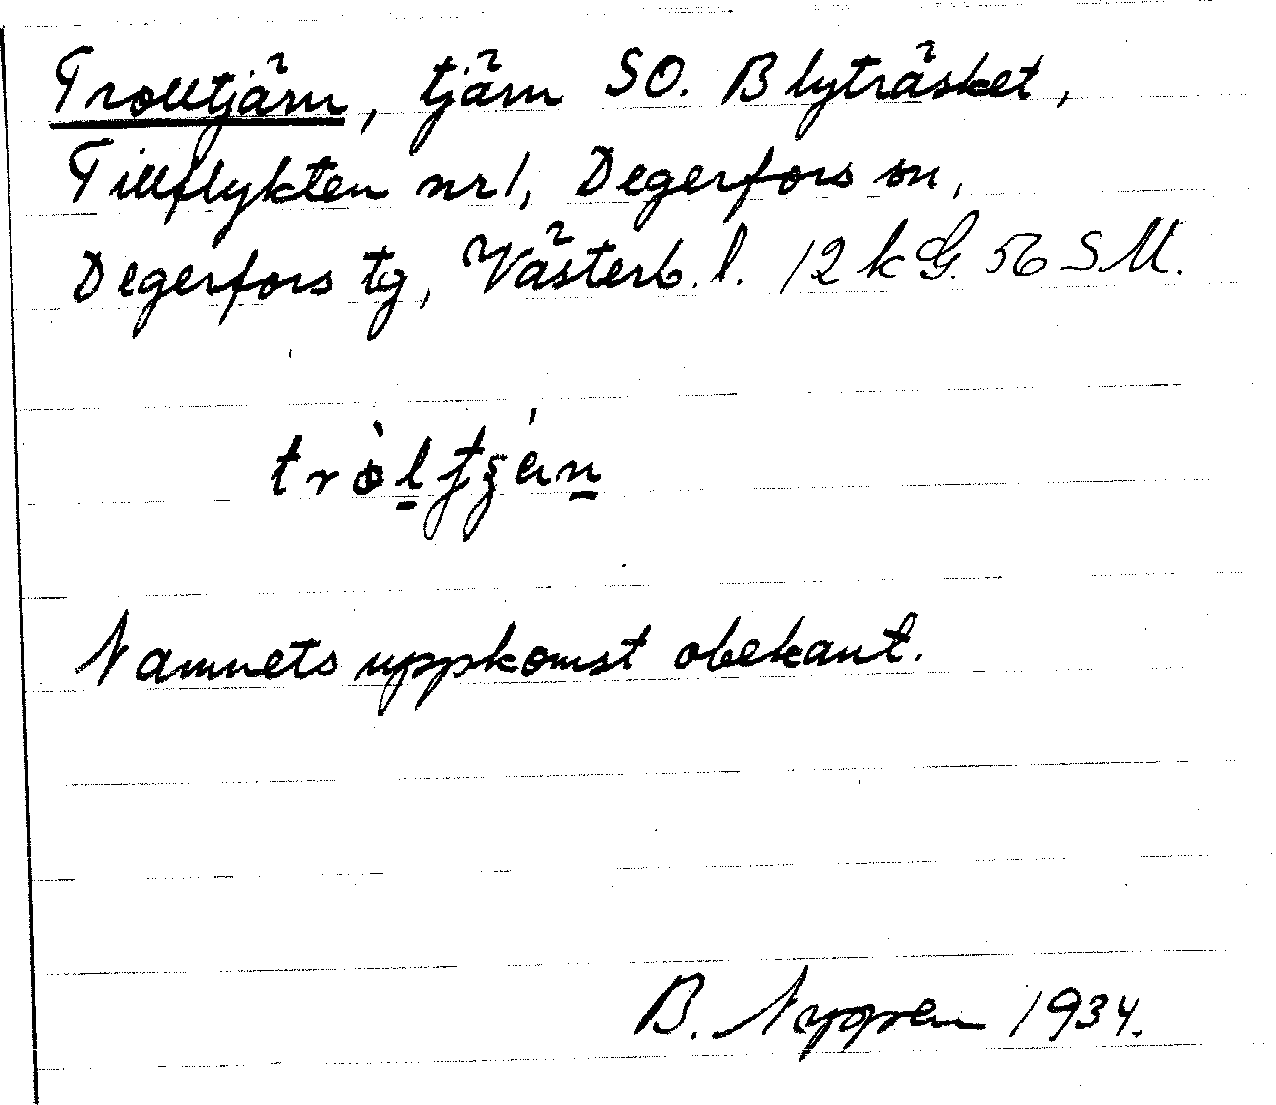 Trolltjärn, tjärn SO. Blyträsket,
Tillflykten nr 1, Degerfors sn,
Degerfors tg, Västerb. l. 12 k G. 56 SM.
Namnets uppkomst obekant.
B. Nygren 1934.